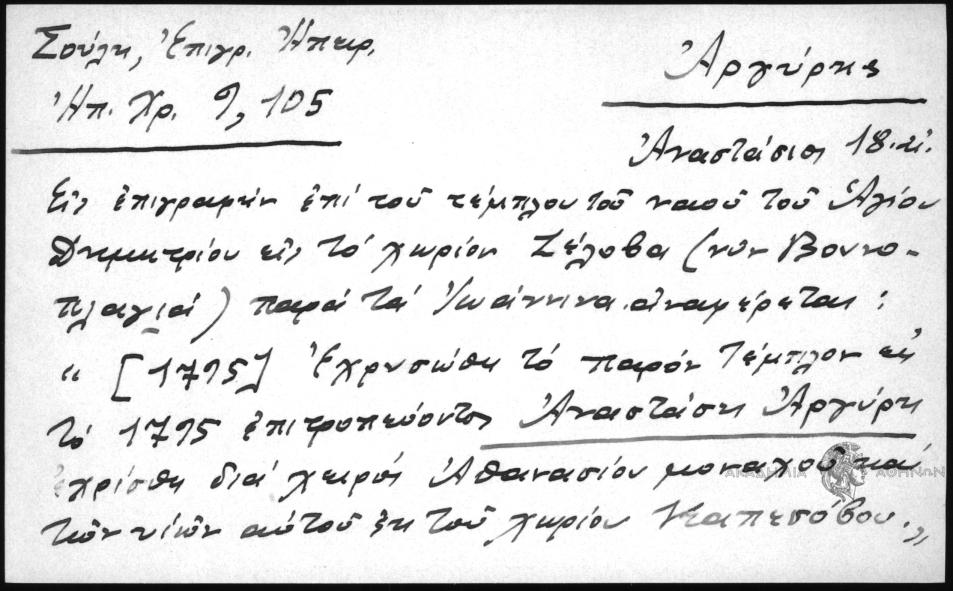 Σούλη, Ἐπιγρ. Ἠπειρ.
Ἠπ. Χρ. 9, 105
Ἀργύρης
Ἀναστάσιος 18. αἰ.
Εἰς ἐπιγραφὴν ἐπὶ τοῦ τέμπλου τοῦ ναοῦ τοῦ Ἁγίου
Δημητρίου εἰς τὸ χωρίον Ζέλοβα (νῦν Βουνο-
πλαγιὰ) παρὰ τὰ Ἰωάννινα ἀναφέρεται:
“ [1795] Ἐχρυσώθη τὸ παρὸν τέμπλον εἰς
τὸ 1795 ἐπιτροπεύοντος Ἀναστάση Ἀργύρη
ἐχρίσθη διὰ χειρὸς Ἀθανασίου μοναχοῦ καὶ
τῶν υἱῶν αὐτοῦ ἐκ τοῦ χωρίου Καπεσόβου.„
ΑΚΑΔΗΜΙΑ ΑΘΗΝΩΝ